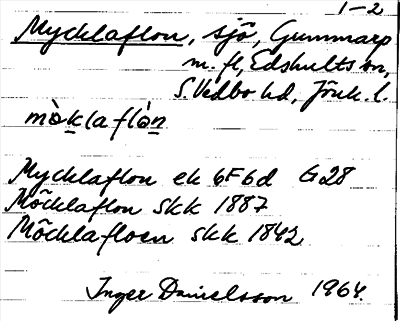 1-2
Mycklaflon, sjö, Gummarp
m. fl, Edshults sn,
S. Vedbo hd, Jönk. l.
mòklaflòn
Mycklaflon ek 6F6d G28
Möcklaflon skk 1887
Möcklafloen skk 1842
Inger Danielsson 1964.